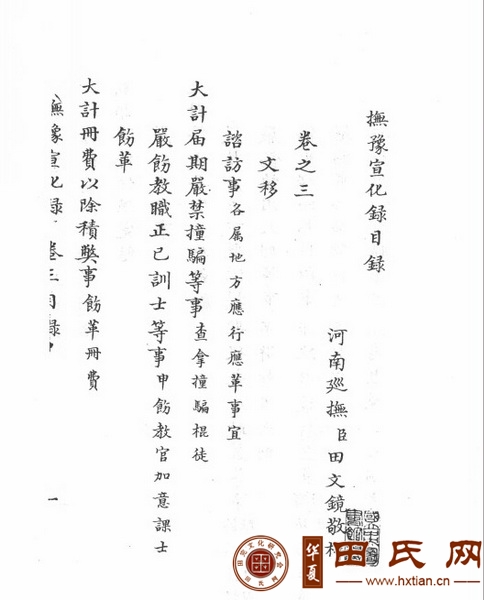 撫豫宣化録目録
河南廵撫臣田文鏡敬
卷之三
文移
諮訪事各属地方應行應革事宜
大計届期嚴禁撞騙等事查拿撞騙棍徒
嚴飭教職正已訓士等事申飭教官加意課士
飭革
大計冊費以除積獘事飭革冊費
撫豫宣化録 卷三目録
一
華夏
田氏网
www.hxtian.cn